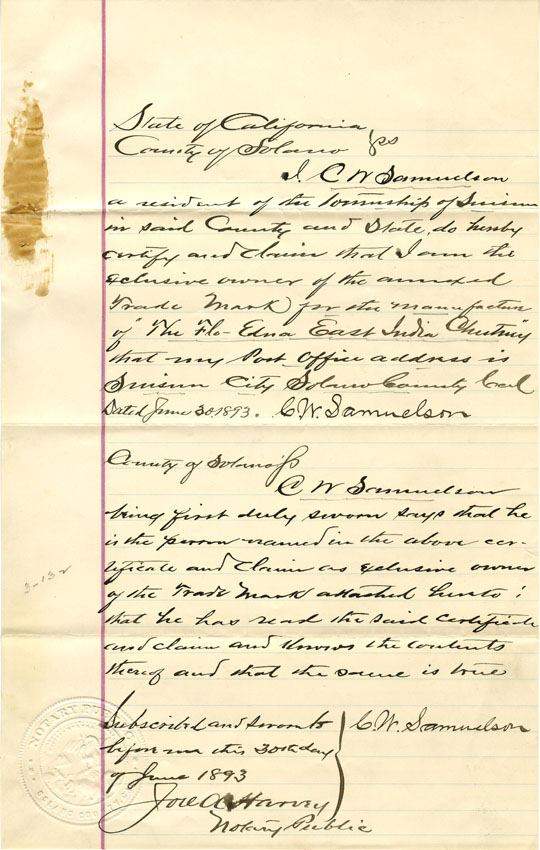 State of California
County of Solano } ss
I. C W Samuelson
a resident of the Township of Suisun
in said County and State, do hereby
certify and claim that I am the
exclusive owner of the annexed
Trade Mark for the manufacture
of "The Flo-Edna East India Chutney"
that my Post Office address is
Suisun City Solano County Cal
Dated June 30. 1893. C. W. Samuelson
County of Solano } ss
C W Samuelson
being first duly sworn says that he
is the person named in the above cer-
tificate and claim as exclusive owner
of the Trade Mark attached hereto;
that he has read the said certificate
and claim and knows the contents
thereof and that the same is true
3-132
Subscribed and sworn to } C. W. Samuelson
before me this 30th day
of June 1893
Notary Public
NOTARY PUBLIC